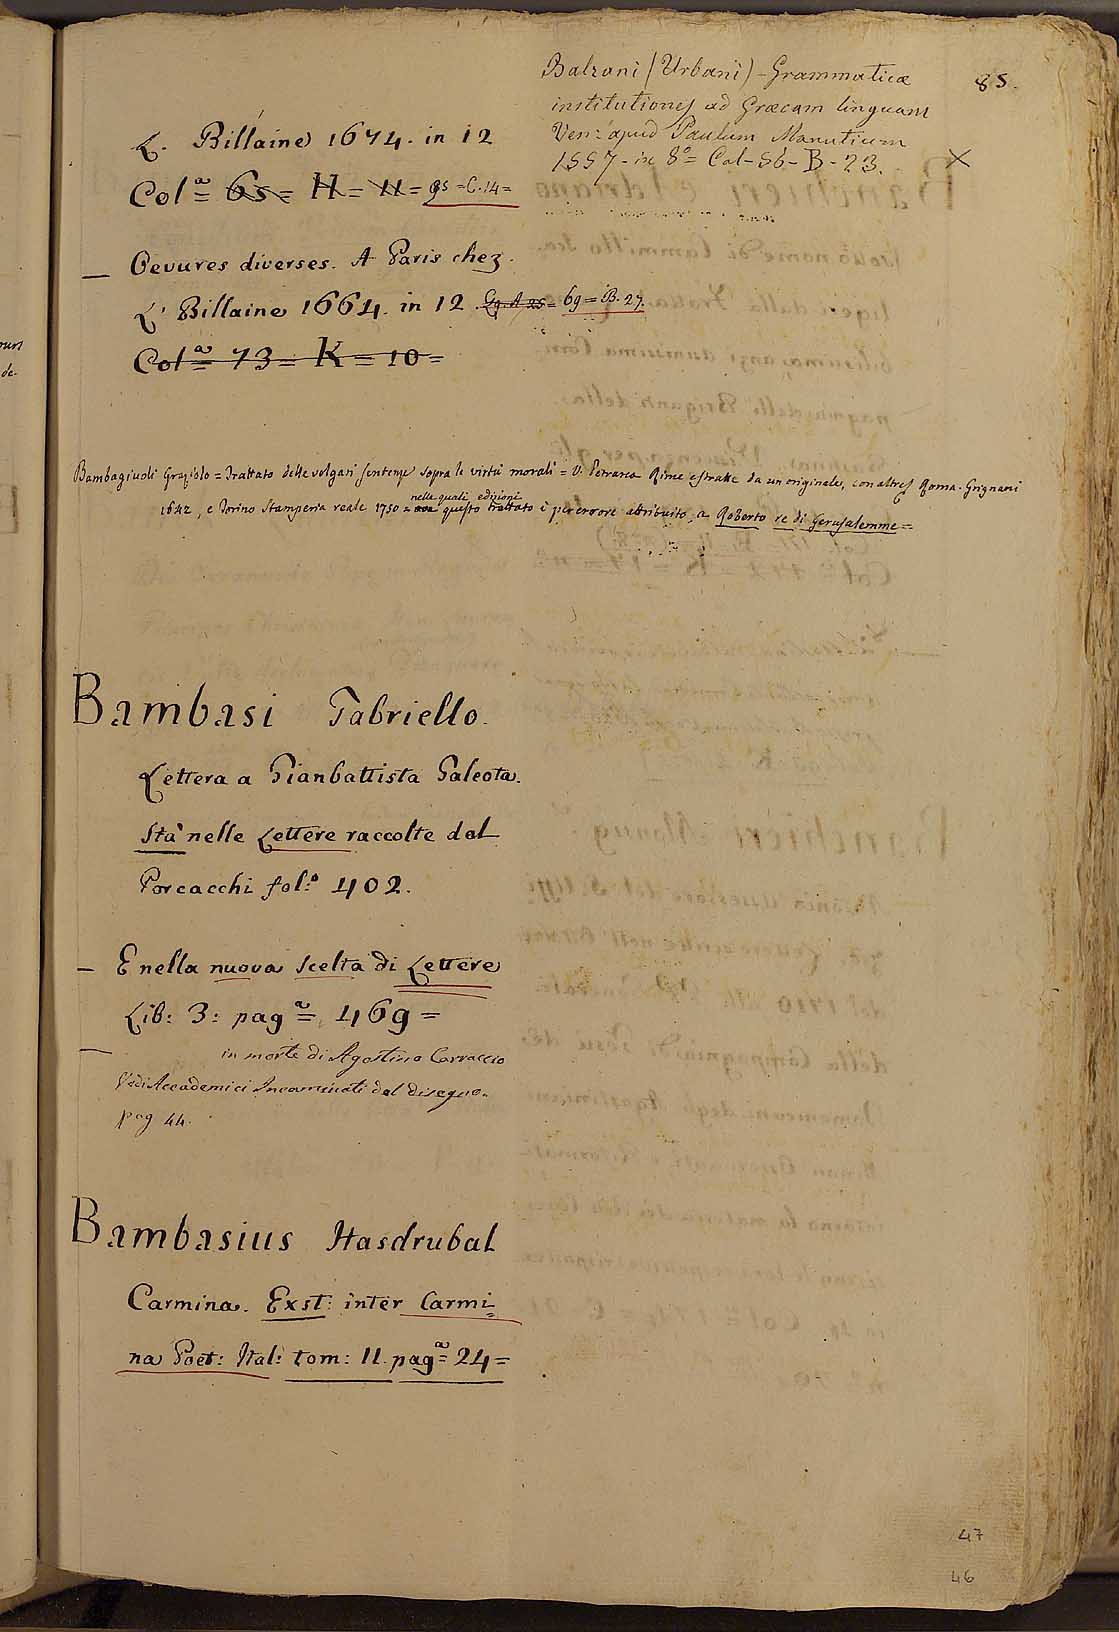 85.
Balzani (Urbani) - Grammaticæ
institutiones ad Græcam linguam
Ven: apud Paulum Manutium
1557 - in 8º = Col - 56 - B - 23. X
L. Billaine 1674. in 12
Colª = 65 = H = 11 = 95 = C. 14 =
— Oevures diverses. A Paris chez
L. Billaine 1664. in 12 = 69 = B. 27.
Colª = 73 = K = 10 =
Bambagiuoli Graziolo = Trattato delle volgari sentenze sopra le virtù morali = V. Petrarca Rime estratte da un originale, con altre Roma. Grignani
1642, e Torino Stamperia reale 1750 = nelle quali edizioni questo trattato è per errore attribuito a Roberto re di Gerusalemme =
Bambasi Gabriello.
Lettera a Gianbattista Galeota.
Stà nelle Lettere raccolte dal
Porcacchi fol:º 402.
— E nella nuova scelta di Lettere
Lib: 3: pagª = 469 =
— in morte di Agostino Carraccio
Vedi Accademici Incaminati del disegno.
pag 44.
Bambasius Hasdrubal
Carmina. Exst: inter Carmi=
na Poet: Ital: tom: 11. pagª = 24 =
47
46